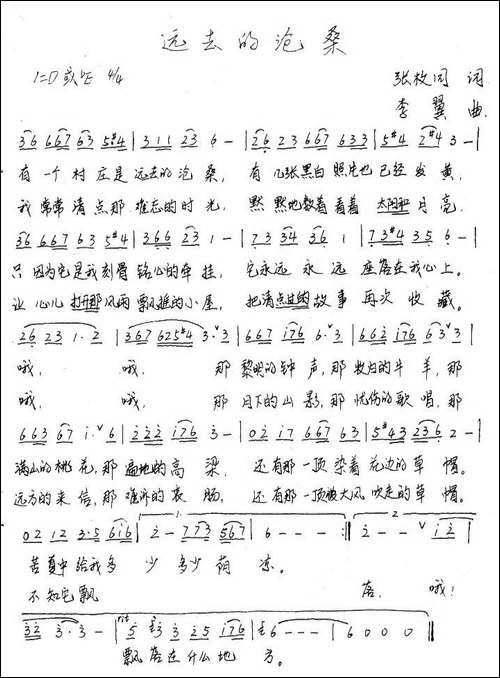 远去的沧桑
1=D 或 ♭E 4/4
张枚同 词
李翼 曲
36 667 63 5#4 | 311 23 6 - | 26 23 667 633 | 5#4 2#4 3 - |
有一个村庄是远去的沧桑, 有几张黑白照片也已经发黄,
我常常清点那难忘的时光, 默默地数着看着太阳和月亮,
36 667 63 5#4 | 366 23 1 - | 73 34 36 1 | 73#4 35 6 - |
只因为它是我刻骨铭心的牵挂, 它永远永远座落在我心上。
让心儿打开那风雨飘摇的小屋, 把清点过的故事再次收藏。
26 23 1·2 | 367 625#4 3·3 | 667 176 6·3 | 662 176 63 3 |
哦, 哦, 那黎明的钟声,那牧归的牛羊,那
哦, 哦, 那月下的山影,那忧伤的歌唱,那
663 67 1·6 | 222 176 3 - | 02 17 667 63 | 5#43 236 2 - |
满山的桃花,那遍地的高粱, 还有那一顶染着花边的草帽。
远方的来信,那难许的衷肠, 还有那一顶被大风吹走的草帽。
02 12 3·5 616 | 1. 2 - 773 567 | 6 - - - :‖ 2. 2 - - 12 |
苦夏中给我多少多少荫凉。
不知它飘 落, 哦!
32 3·3 - | 5 3 3 25 176 | 6 - - - | 6 0 0 0 ‖
飘落在什么地方。